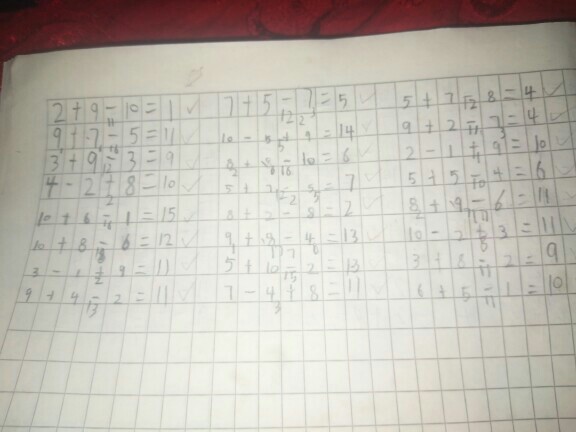 2 + 9 - 10 = 1
9 + 7 - 5 = 11
3 + 9 - 3 = 9
4 - 2 + 8 = 10
10 + 6 - 1 = 15
10 + 8 - 6 = 12
3 - 1 + 9 = 11
9 + 4 - 2 = 11
7 + 5 - 7 = 5
10 - 5 + 9 = 14
8 + 8 - 10 = 6
8 + 2 - 8 = 2
9 + 8 - 4 = 13
5 + 10 - 2 = 13
7 - 4 + 8 = 11
5 + 7 - 8 = 4
9 + 2 - 7 = 4
2 - 1 + 9 = 10
5 + 5 - 4 = 6
8 + 9 - 6 = 11
10 - 2 + 3 = 11
3 + 8 - 2 = 9
6 + 5 - 1 = 10